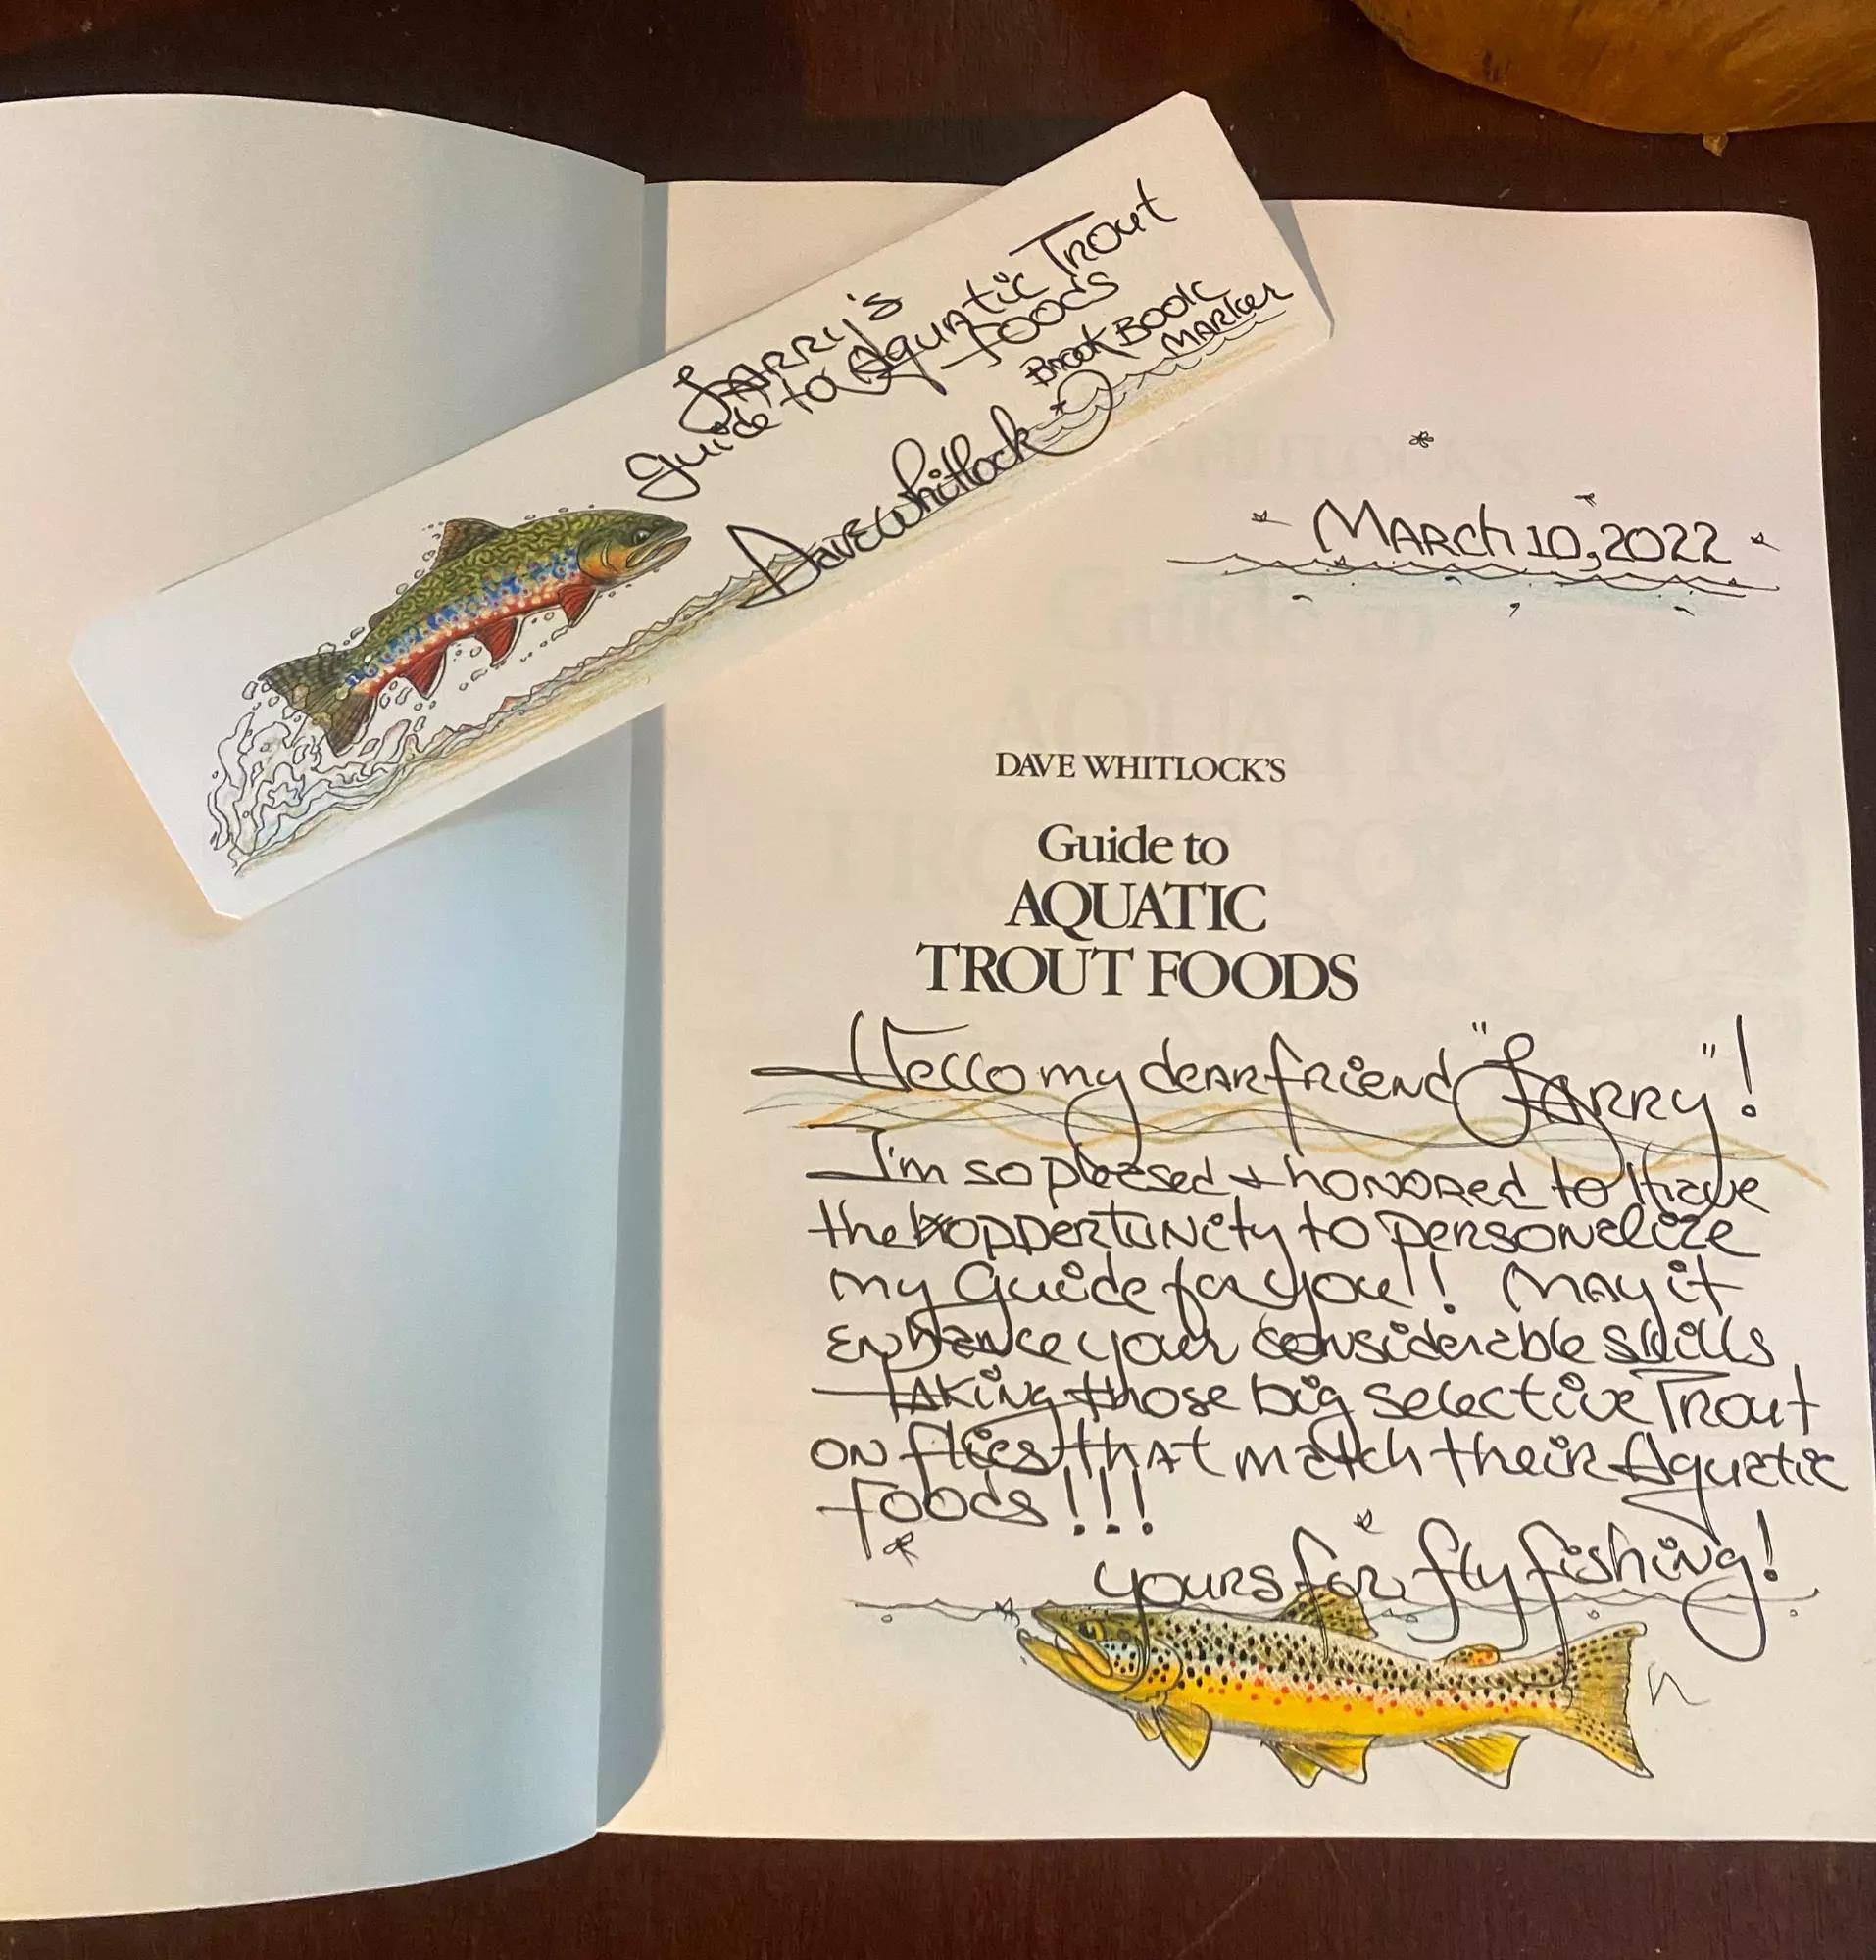 Larry's
guide to Aquatic Trout
Foods
Brook Book
Marker
Dave Whitlock
March 10, 2022
DAVE WHITLOCK'S
Guide to
AQUATIC
TROUT FOODS
Hello my dear friend "Larry"!
I'm so pleased & honored to have
the oppertunity to personalize
my Guide for you!! May it
Enhance your considerable skills
Taking those big selective Trout
on flies that match their Aquatic
Foods!!!
yours for fly fishing!